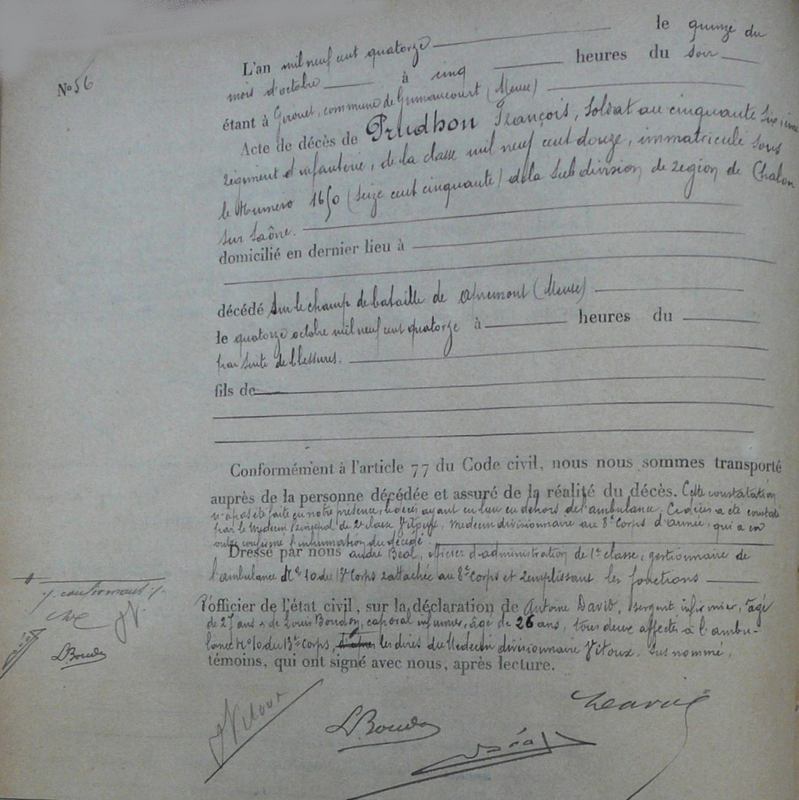 N° 56
L'an mil neuf cent quatorze le quinze du
mois d'octobre à cinq heures du soir
étant à Gironet, commune de Gimaucourt (Meuse)
Acte de décès de Prudhon François, Soldat au cinquante sixième
régiment d'infanterie, de la classe mil neuf cent douze, immatriculé sous
le Numéro 1650 (seize cent cinquante) de la Subdivision de région de Chalon
sur Saône.
domicilié en dernier lieu à
décédé sur le champ de bataille de Apremont (Meuse)
le quatorze octobre mil neuf cent quatorze à heures du
par suite de blessures.
fils de
Conformément à l'article 77 du Code civil, nous nous sommes transporté
auprès de la personne décédée et assuré de la réalité du décès. Cette constatation
n'a pas été faite en notre présence, le décès ayant eu lieu en dehors de l'ambulance. Ce décès a été constaté
par le Médecin Principal de 2e classe Vitoux, Médecin divisionnaire au 8e Corps d'armée, qui a en
outre confirmé l'inhumation du décédé.
Dressé par nous André Béal, officier d'administration de 1e classe, gestionnaire de
l'ambulance N° 10 du 13e Corps rattachée au 8e Corps et remplissant les fonctions
d'officier de l'état civil, sur la déclaration de Antoine David, sergent infirmier, âgé
de 27 ans & de Louis Boudon, caporal infirmier, âgé de 26 ans, tous deux affectés à l'ambu-
lance N° 10 du 13e Corps, les dires du Médecin divisionnaire Vitoux sus nommé,
témoins, qui ont signé avec nous, après lecture.
L Boudon
Vitoux
L Boudon
Béal
David